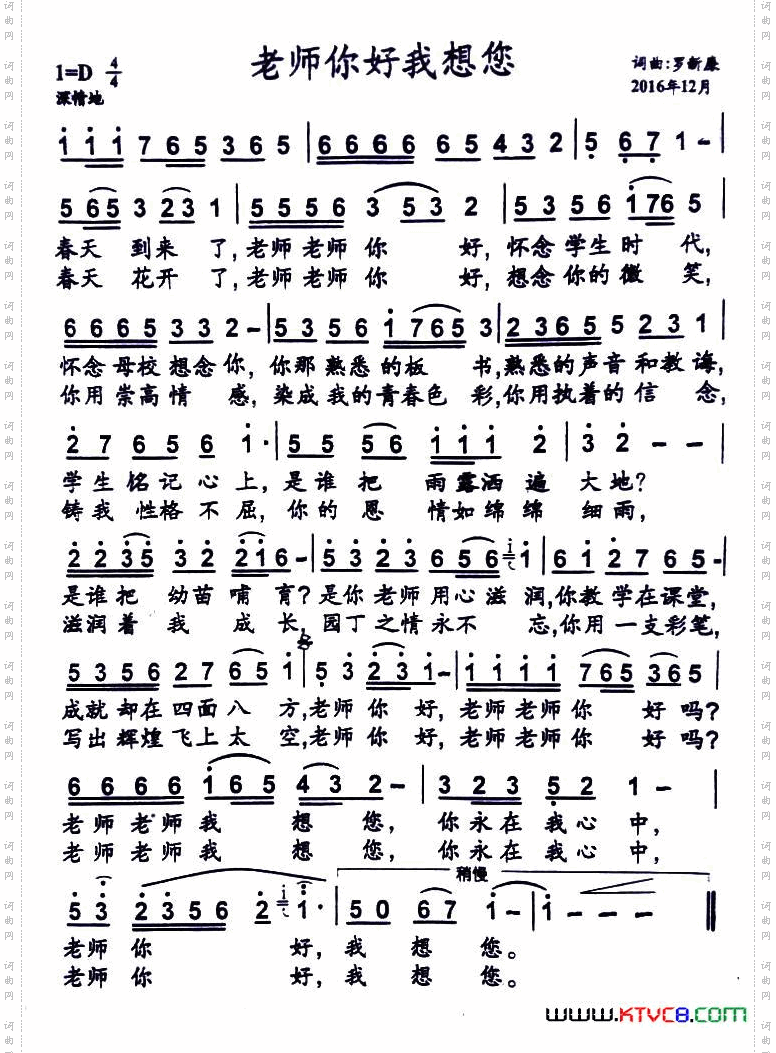 老师你好我想您
1=D 4/4
词曲:罗新廉
深情地
2016年12月
1 1 1 7 6 5 3 6 5 | 6 6 6 6 6 5 4 3 2 | 5 6 7 1 - |
5 6 5 3 2 3 1 | 5 5 5 6 3 5 3 2 | 5 3 5 6 1 7 6 5 |
春天 到来 了,老师老师你 好,怀念学生时 代,
春天 花开 了,老师老师你 好,想念你的微 笑,
6 6 6 5 3 3 2 - | 5 3 5 6 1 7 6 5 3 | 2 3 6 5 5 2 3 1 |
怀念母校想念你,你那熟悉的板 书,熟悉的声音和教诲,
你用崇高情 感,染成我的青春色彩,你用执着的信 念,
2 7 6 5 6 1 · | 5 5 5 6 1 1 1 2 | 3 2 - - |
学生铭记心上,是谁把 雨露洒遍 大地?
铸我性格不屈,你的恩 情如绵绵 细雨,
2 2 3 5 3 2 2 1 6 - | 5 3 2 3 6 5 6 i 1 | 6 1 2 7 6 5 - |
是谁把 幼苗哺 育?是你老师用心滋 润,你教学在课堂,
滋润着 我 成 长,园丁之情永不 忘,你用一支彩笔,
5 3 5 6 2 7 6 5 1 | 5 3 2 3 1 - | 1 1 1 1 7 6 5 3 6 5 |
成就却在四面八 方,老师你 好,老师老师你 好吗?
写出辉煌飞上太 空,老师你 好,老师老师你 好吗?
6 6 6 6 1 6 5 4 3 2 - | 3 2 3 5 2 1 - |
老师老师我 想 您, 你永在我心中,
老师老师我 想 您, 你永在我心中,
稍慢
5 3 2 3 5 6 2 i 1 · | 5 0 6 7 1 - | 1 - - - ‖
老师你 好,我 想 您。
老师你 好,我 想 您。
WWW.KTVC8.COM
词曲网